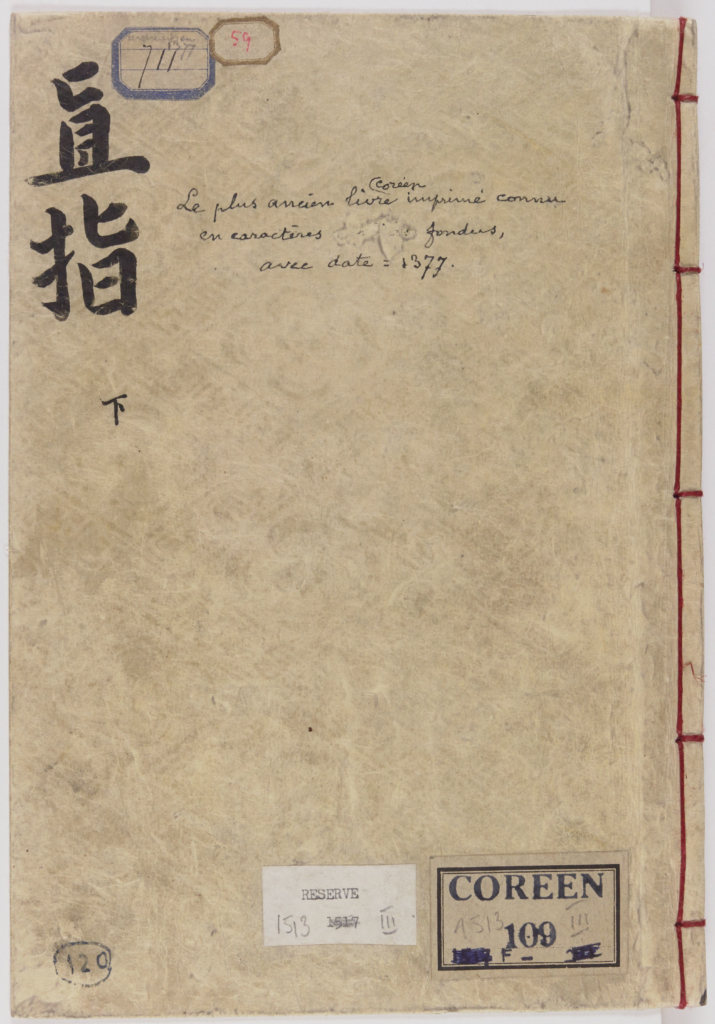 7117
59
直
指
下
Coréen
Le plus ancien livre imprimé connu
en caractères fondus,
avec date = 1377.
RESERVE
1513 1517 III
COREEN
1513 III
109
F -
120